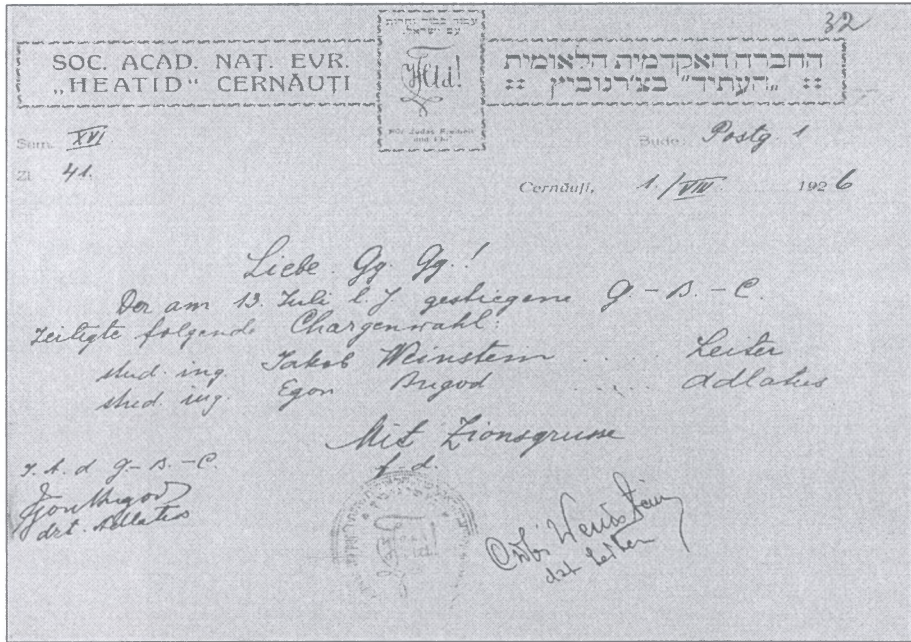 32
עבוד כבוד וחרות
עם ישראל.
SOC. ACAD. NAȚ. EVR.
„HEATID" CERNĂUȚI
Für Judas Freiheit
und Ehr'
החברה האקדמית הלאומית
:: „העתיד" בצ'רנוביץ ::
Sem. XVI
Bude: Postg. 1
Zl. 41.
Cernăuți, 1./VIII 1926
Liebe Gg. Gg.!
Der am 13. Juli l. J gestiegene G.-B.-C.
zeitigte folgende Chargenwahl:
stud. ing. Jakob Weinstein ... Leiter
stud. ing. Egon Brigod ..... Adlatus
Mit Zionsgrusse
f. d.
I. A. d G-B.-C.
Egon Brigod
dzt. Adlatus
Weinstein
dzt Leiter